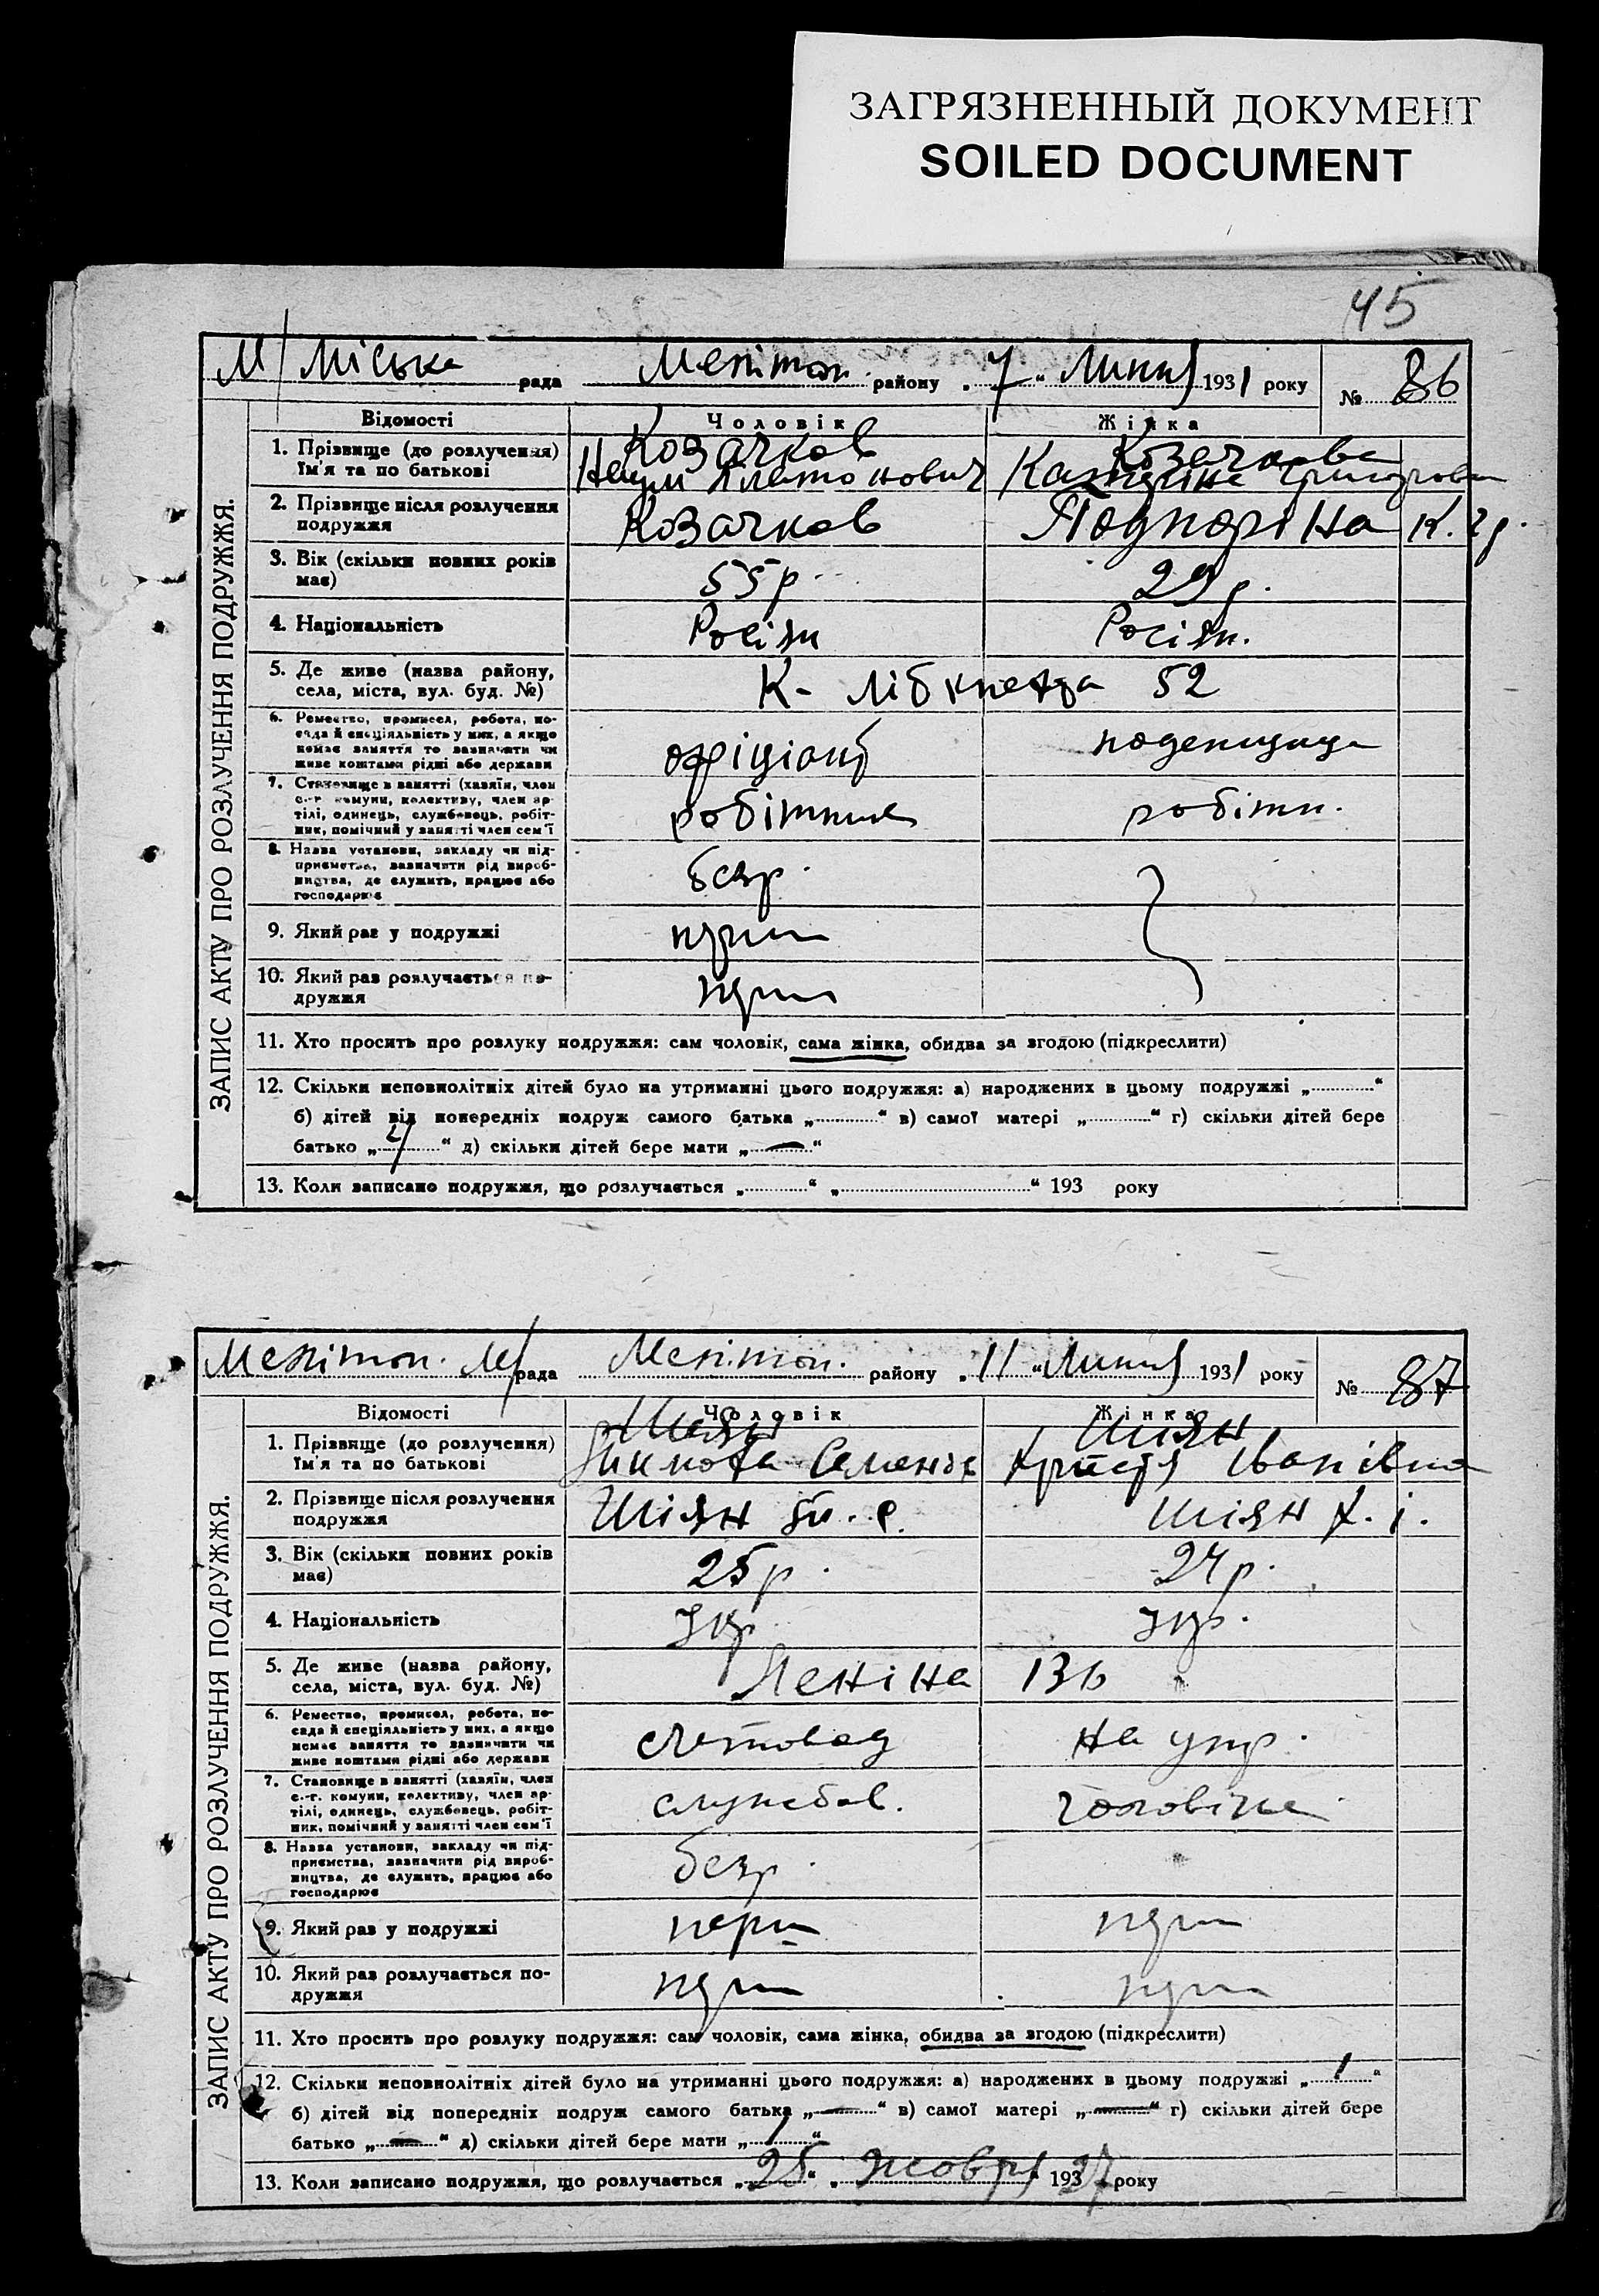 ЗАГРЯЗНЕННЫЙ ДОКУМЕНТ
SOILED DOCUMENT
45
М/ Міська рада Мелітоп. району „7“ Липня 1931 року № 86
ЗАПИС АКТУ ПРО РОЗЛУЧЕННЯ ПОДРУЖЖЯ.
Відомості Чоловік Жінка
1. Прізвище (до розлучення) Козачков Козачкова
Ім'я та по батькові Наум Платонович Катерина Григоровн
2. Прізвище після розлучення
подружжя Козачков Подпоріна К. Гр.
3. Вік (скільки повних років
має) 55 р. 29 р.
4. Національність Росіян Росіян.
5. Де живе (назва району,
села, міста, вул. буд. №) К- Лібкнехта 52
6. Ремество, промисел, робота, по-
сада й спеціяльність у них, а якщо
немає заняття то зазначити чи
живе коштами рідні або держави офіціант поденщица
7. Становище в занятті (хазяїн, член
с.-г. комуни, колективу, член ар-
тілі, одинець, службовець, робіт-
ник, помічний у занятті член сем'ї робітник робітн.
8. Назва установи, закладу чи під-
приємства, зазначити рід вироб-
ництва, де служить, працює або
господарює безр.
9. Який раз у подружжі перш
10. Який раз розлучається по-
дружжя перш
11. Хто просить про розлуку подружжя: сам чоловік, сама жінка, обидва за згодою (підкреслити)
12. Скільки неповнолітніх дітей було на утриманні цього подружжя: а) народжених в цьому подружжі „............“
б) дітей від попередніх подруж самого батька „............“ в) самої матері „............“ г) скільки дітей бере
батько „4“ д) скільки дітей бере мати „—“
13. Коли записано подружжя, що розлучається „............“ „..............................“ 193 року
Мелітоп. М/рада Мелітоп. району „11“ Липня 1931 року № 87
ЗАПИС АКТУ ПРО РОЗЛУЧЕННЯ ПОДРУЖЖЯ.
Відомості Чоловік Жінка
1. Прізвище (до розлучення) Шіян Шіян
Ім'я та по батькові Тимофа Семенов Христя Іванівна
2. Прізвище після розлучення
подружжя Шіян Т. С. Шіян Х. І.
3. Вік (скільки повних років
має) 25 р. 24 р.
4. Національність Укр. Укр.
5. Де живе (назва району,
села, міста, вул. буд. №) Леніна 136
6. Ремество, промисел, робота, по-
сада й спеціяльність у них, а якщо
немає заняття то зазначити чи
живе коштами рідні або держави счетовод на утр.
7. Становище в занятті (хазяїн, член
с.-г. комуни, колективу, член ар-
тілі, одинець, службовець, робіт-
ник, помічний у занятті член сем'ї службов. чоловіка
8. Назва установи, закладу чи під-
приємства, зазначити рід вироб-
ництва, де служить, працює або
господарює безр.
9. Який раз у подружжі перш перш
10. Який раз розлучається по-
дружжя перш перш
11. Хто просить про розлуку подружжя: сам чоловік, сама жінка, обидва за згодою (підкреслити)
12. Скільки неповнолітніх дітей було на утриманні цього подружжя: а) народжених в цьому подружжі „1“
б) дітей від попередніх подруж самого батька „—“ в) самої матері „—“ г) скільки дітей бере
батько „—“ д) скільки дітей бере мати „1“
13. Коли записано подружжя, що розлучається „25“ „Жовтня“ 19327 року